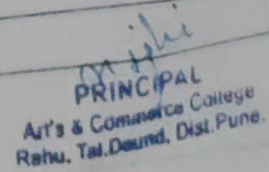 PRINCIPAL
Art's & Commerce College
Rahu, Tal.Daund, Dist.Pune.